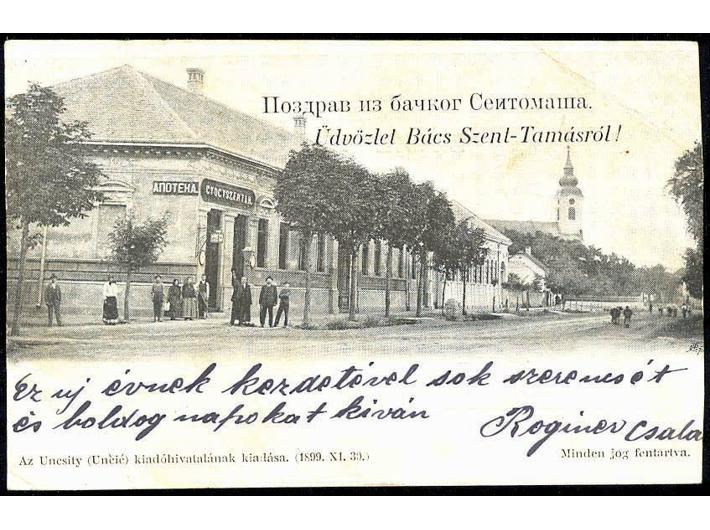 Поздрав из бачког Сентомаша.
Üdvözlet Bács Szent-Tamásról!
АПОТЕКА.
GYÓGYSZERTÁR
Ez uj évnek kezdetével sok szerencsét
és boldog napokat kíván
Roginer Csala
Az Uncsity (Unčić) kiadóhivatalának kiadása. (1899. XI. 30.)
Minden jog fentartva.